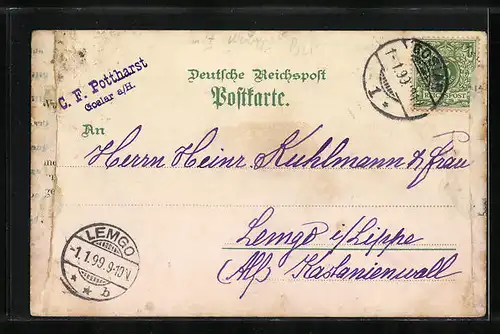 C. F. Pottharst
Goslar a/H.
Deutsche Reichspost
Postkarte.
An
Herrn Heinr. Kuhlmann & Frau
Lemgo i/Lippe
Alß Kastanienwall
GOSLAR
1.1.99.
1
*
LEMGO
-1.1.99.9-10V.
* * b